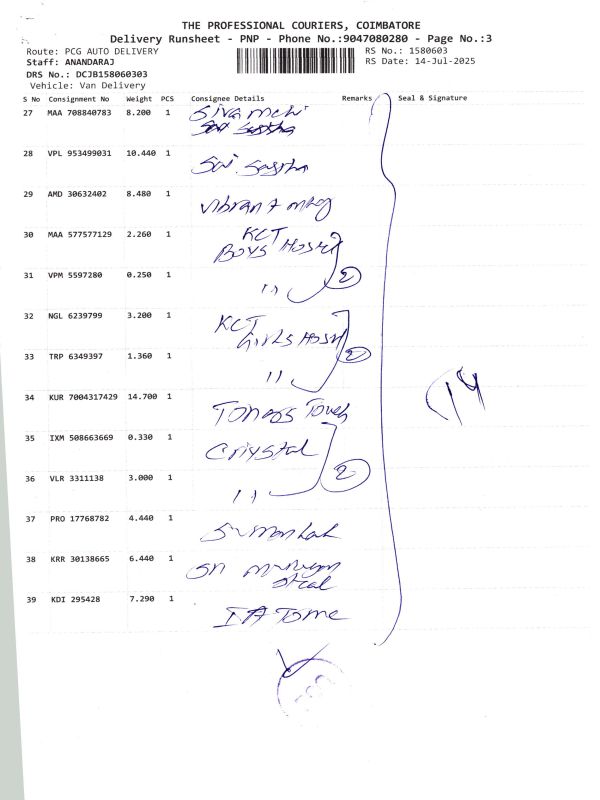 THE PROFESSIONAL COURIERS, COIMBATORE
Delivery Runsheet - PNP - Phone No.:9047080280 - Page No.:3
Route: PCG AUTO DELIVERY RS No.: 1580603
Staff: ANANDARAJ RS Date: 14-Jul-2025
DRS No.: DCJB158060303
Vehicle: Van Delivery
S No Consignment No Weight PCS Consignee Details Remarks Seal & Signature
27 MAA 708840783 8.200 1
28 VPL 953499031 10.440 1 Sai Sastha
29 AMD 30632402 8.480 1 Vibrant
30 MAA 577577129 2.260 1 KCT
BOYS Hostel
31 VPM 5597280 0.250 1 11 2
32 NGL 6239799 3.200 1 KCT
GIRLS Hostel
33 TRP 6349397 1.360 1 11 2
34 KUR 7004317429 14.700 1
35 IXM 508663669 0.330 1 Crystal
36 VLR 3311138 3.000 1 11 2
37 PRO 17768782 4.440 1
38 KRR 30138665 6.440 1 Sri
39 KDI 295428 7.290 1